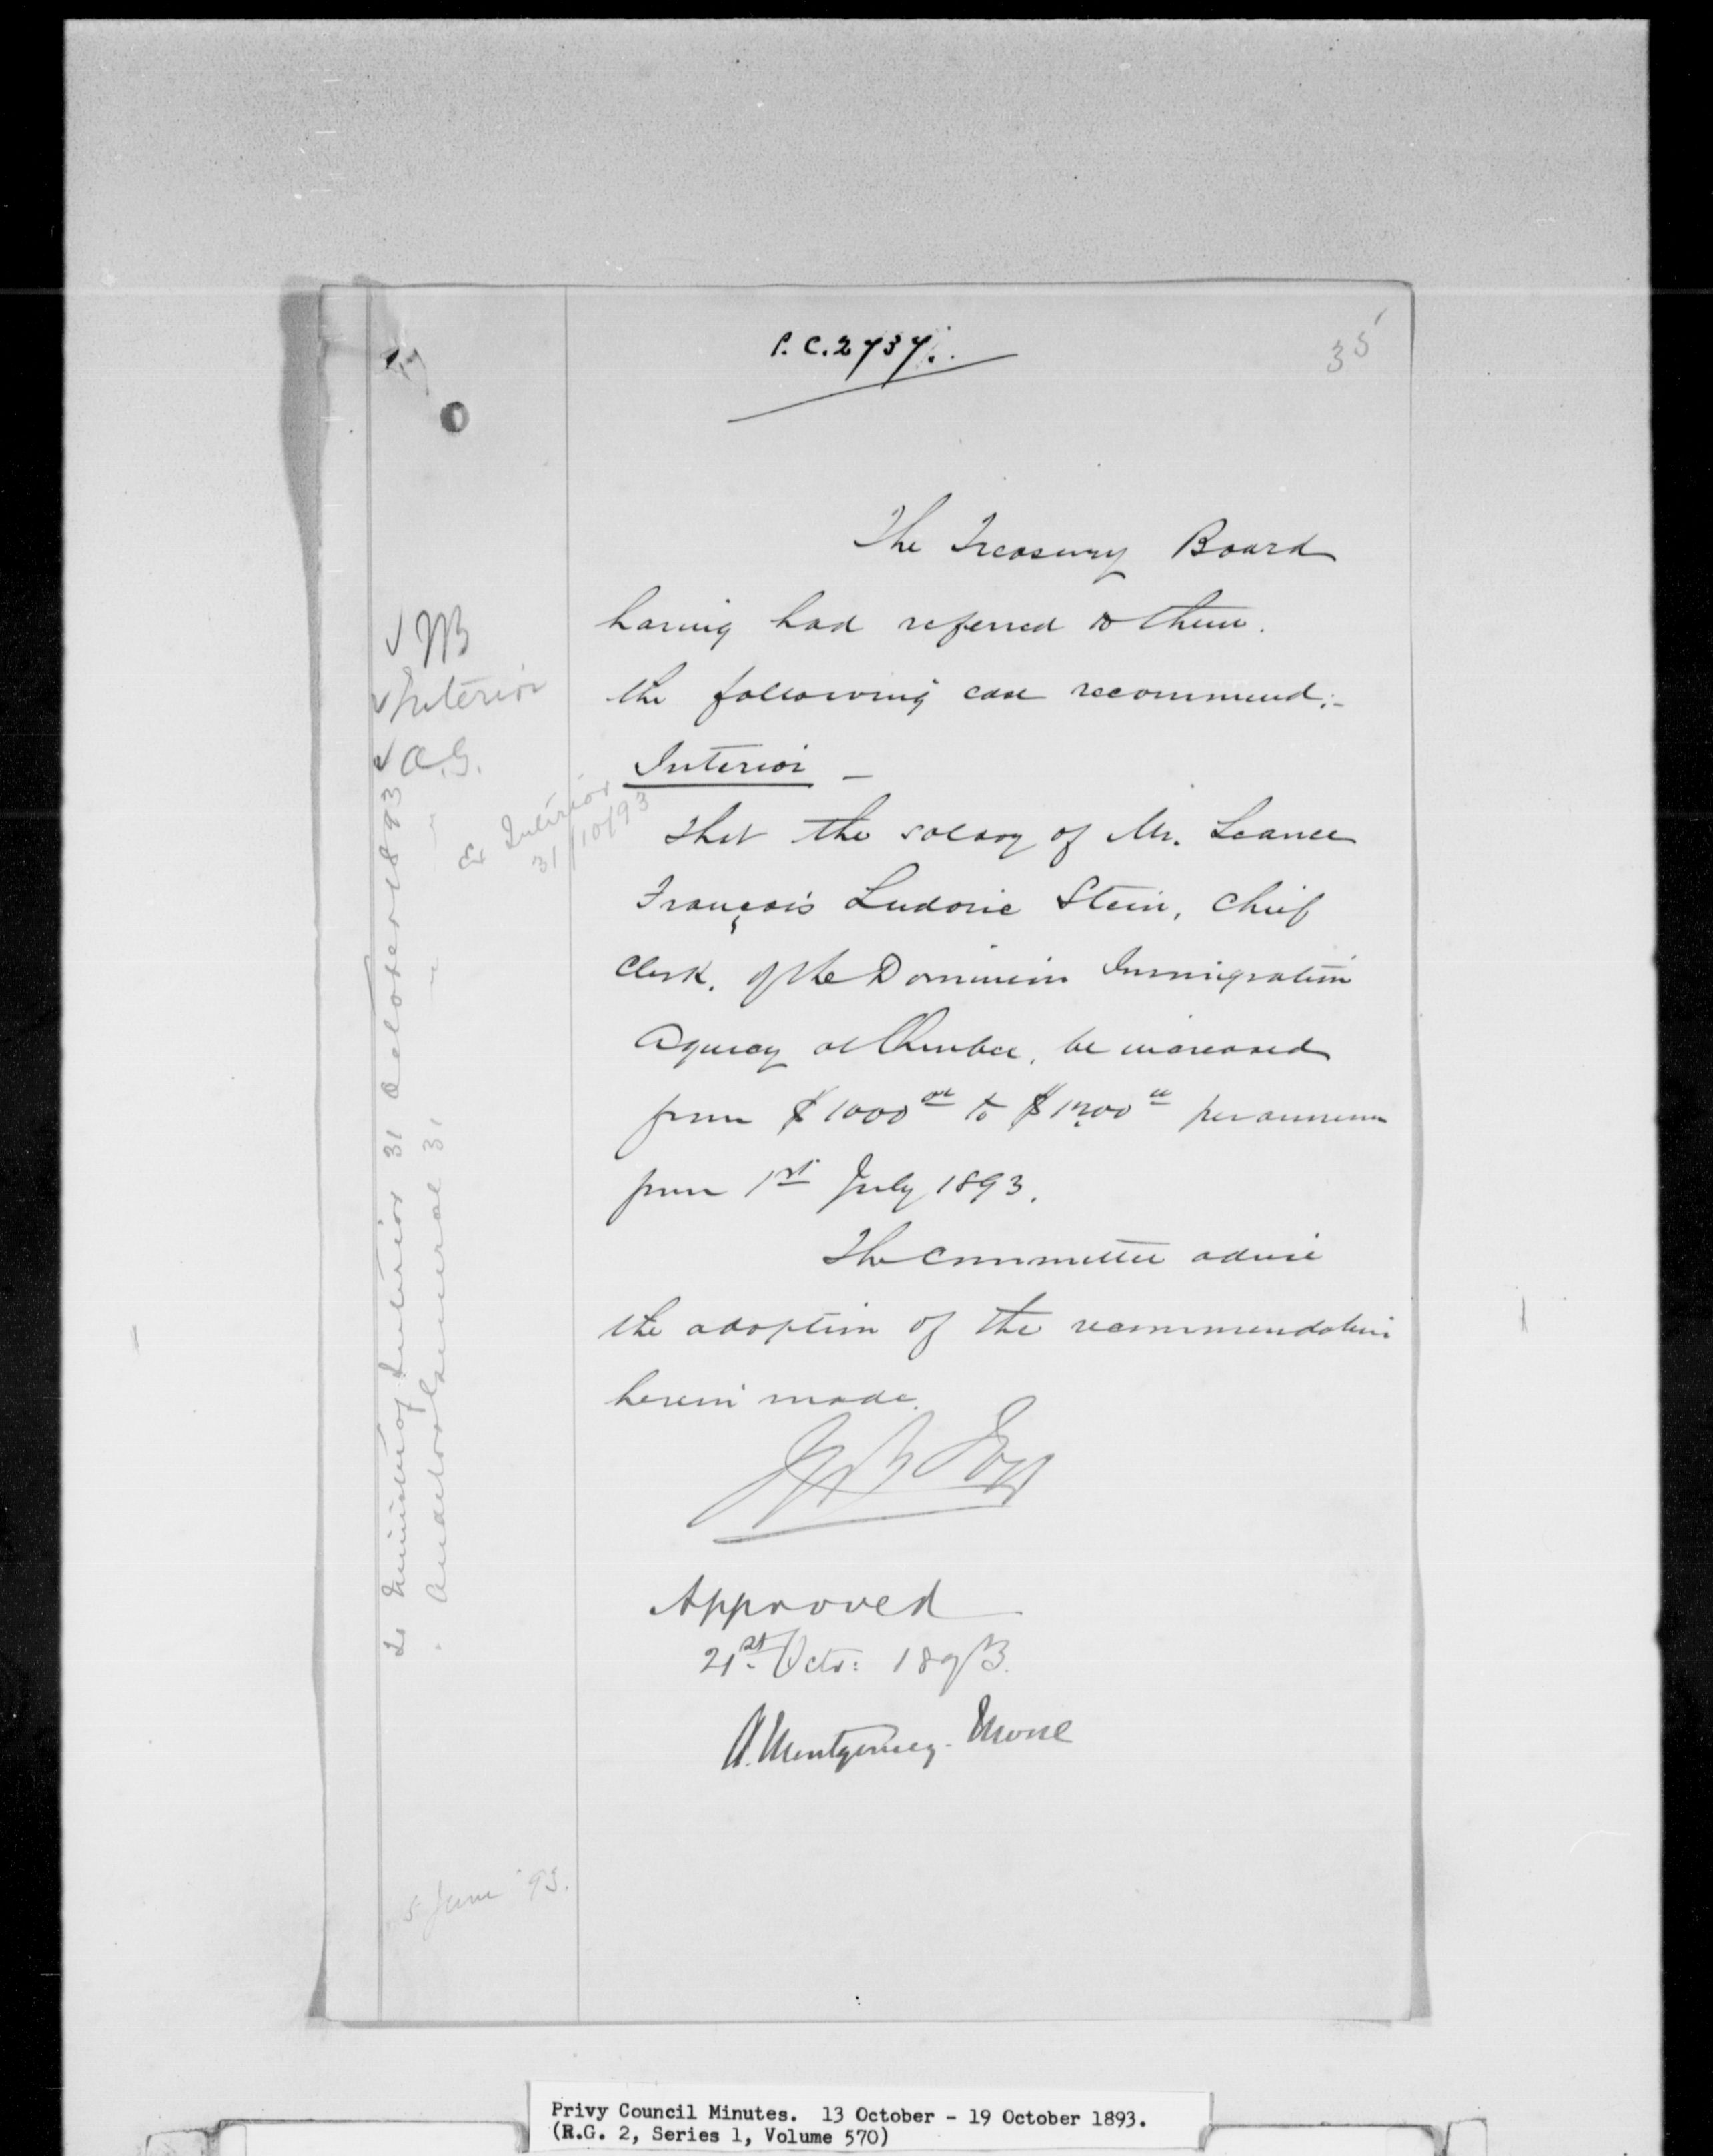 P.C. 2737.
35
The Treasury Board
having had referred to them.
the following case recommend:-
Interior -
That the salary of Mr. Leance
François Ludovic Stein, Chief
Clerk, of the Dominion Immigration
Agency at Quebec, be increased
from $1000 to $1200 per annum
from 1st July 1893.
The Committee advise
the adoption of the recommendation
herein made.
Approved
21st Octr: 1893.
A. Montgomery-Moore
TB
Interior
A.G.
Ex Interior
31/10/93
To Minister of Interior 31 October 1893
" Auditor General 31 " "
5 June '93.
Privy Council Minutes. 13 October - 19 October 1893.
(R.G. 2, Series 1, Volume 570)